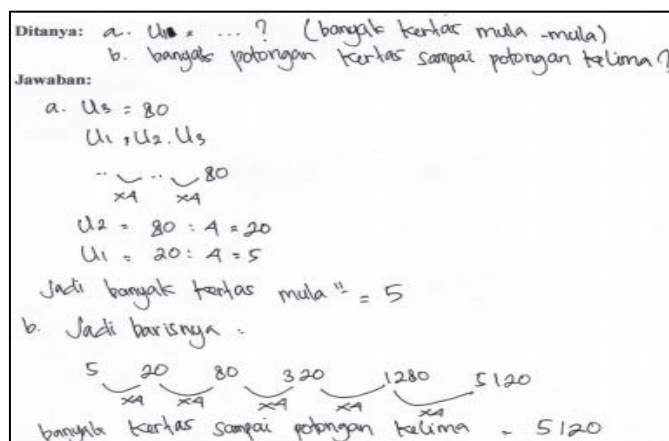 Ditanya: a. U₁ = ... ? (banyak kertas mula-mula)
b. banyak potongan kertas sampai potongan kelima?
Jawaban:
a. U₃ = 80
U₁, U₂. U₃
.. .. 80
×4 ×4
U₂ = 80 : 4 = 20
U₁ = 20 : 4 = 5
Jadi banyak kertas mula" = 5
b. Jadi barisnya :
5 20 80 320 1280 5120
×4 ×4 ×4 ×4 ×4
banyak kertas sampai potongan kelima = 5120